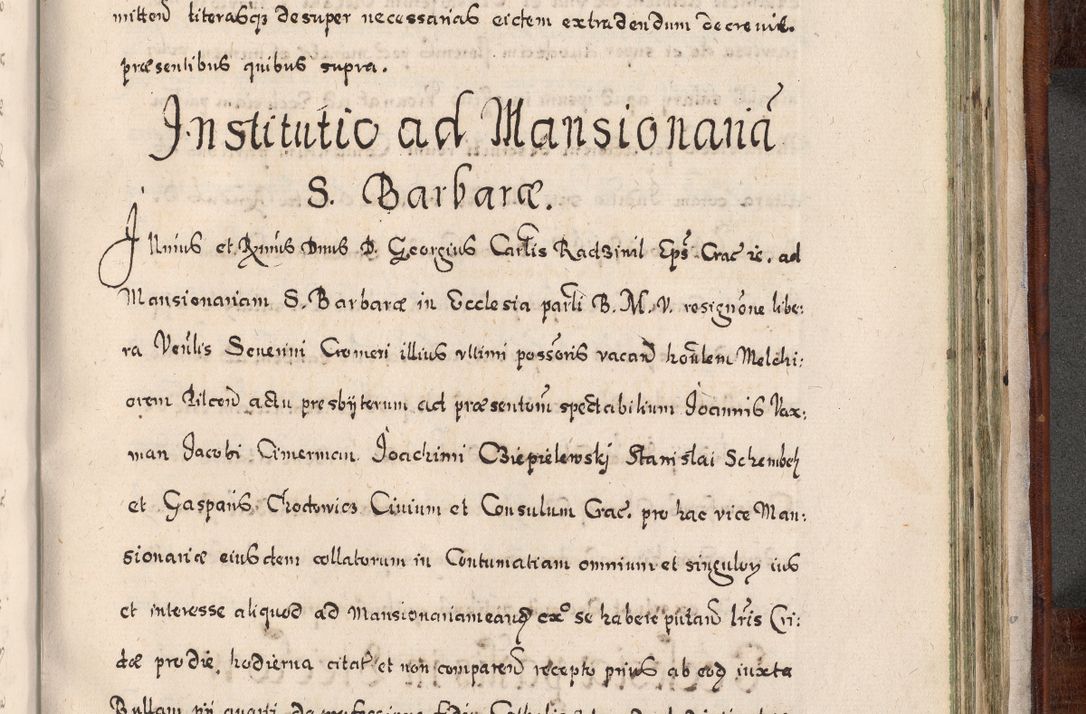 mitten̄ literasqꝫ desuper necessarias eidem extradendum decrevit.
præsentibus quibus supra.
Institutio ad Mansionariā
S. Barbaræ.
Illm̄us et Rm̄us Dnus D. Georgius Carlis Radzivil Ep̄s Crac ꝛc. ad
Mansionariam S. Barbaræ in Ecclesia parli B. M. V. resign̄one libe:
ra Ven̄lis Seuerini Cromeri illius vltimi possōris vacan̄ hon̄lem Melchi:
orem Pilcen̄ actu presbÿterum ad præsentom̄ spectabilium Joannis Vax:
man Jacobi Cimerman Joachimi Cziepielewskj Stanislai Schembek
et Gasparis Chodowicz Ciuium et Consulum Crac. pro hac vice Man:
sionariæ eiusdem collatorum in Contumatiam omnium et singuloꝝ ius
et interesse aliquod ad Mansionariam eandꝫ exo se habere putan̄ lr̄is Cri:
dæ pro die hodierna citat et non comparen̄ recepto prius ab eodꝫ iuxta
Bullam pij quarti de professione fidei Catholicæ